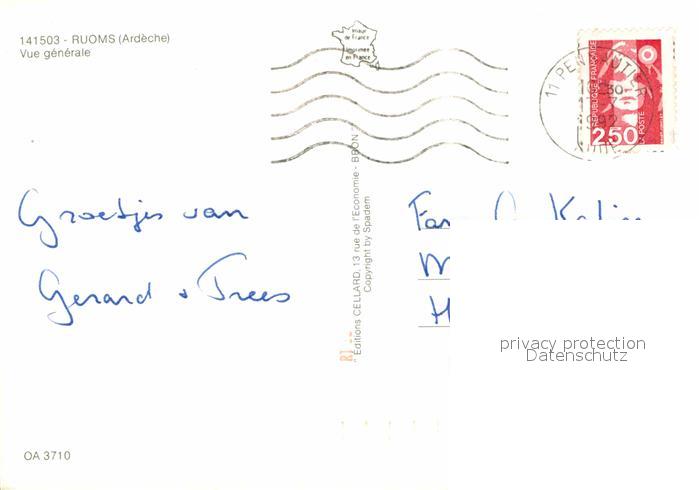 141503 - RUOMS (Ardèche)
Vue générale
Image
de France
Imprimée
en France
RÉPUBLIQUE FRANÇAISE
2,50
LA POSTE
Groetjes van
Gerard + Trees
"Editions CELLARD, 13 rue de l'Economie - BRON"
Copyright by Spadem
Fam
privacy protection
Datenschutz
OA 3710